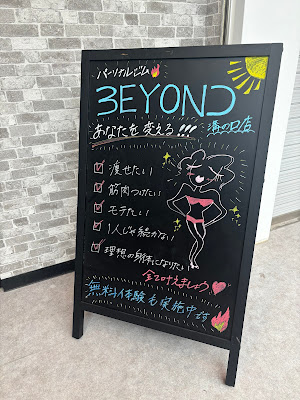 パーソナルジム
BEYOND
あなたを変える!!! 溝の口店
痩せたい
筋肉つけたい
モテたい
1人じゃ続かない
理想の身体になりたい
全て叶えましょう
無料体験も実施中です